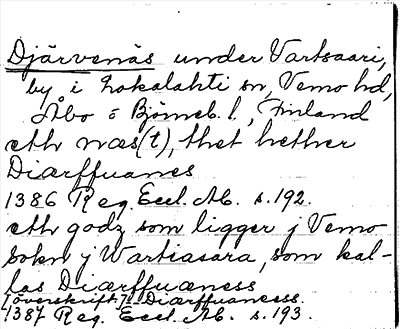 Djärvenäs under Vartsaari,
by i Lokalahti sn, Vemo hd,
Åbo o Björneb. l., Finland
eth næs(t), thet hether
Diærffuanes
1386 Reg. Eccl. Ab. s. 192.
eth godz som ligger j Vemo
sokn j Wartiasara, som kal-
las Diærffuæness
[överskrift:] Diærffuaness.
1387 Reg. Eccl. Ab. s. 193.